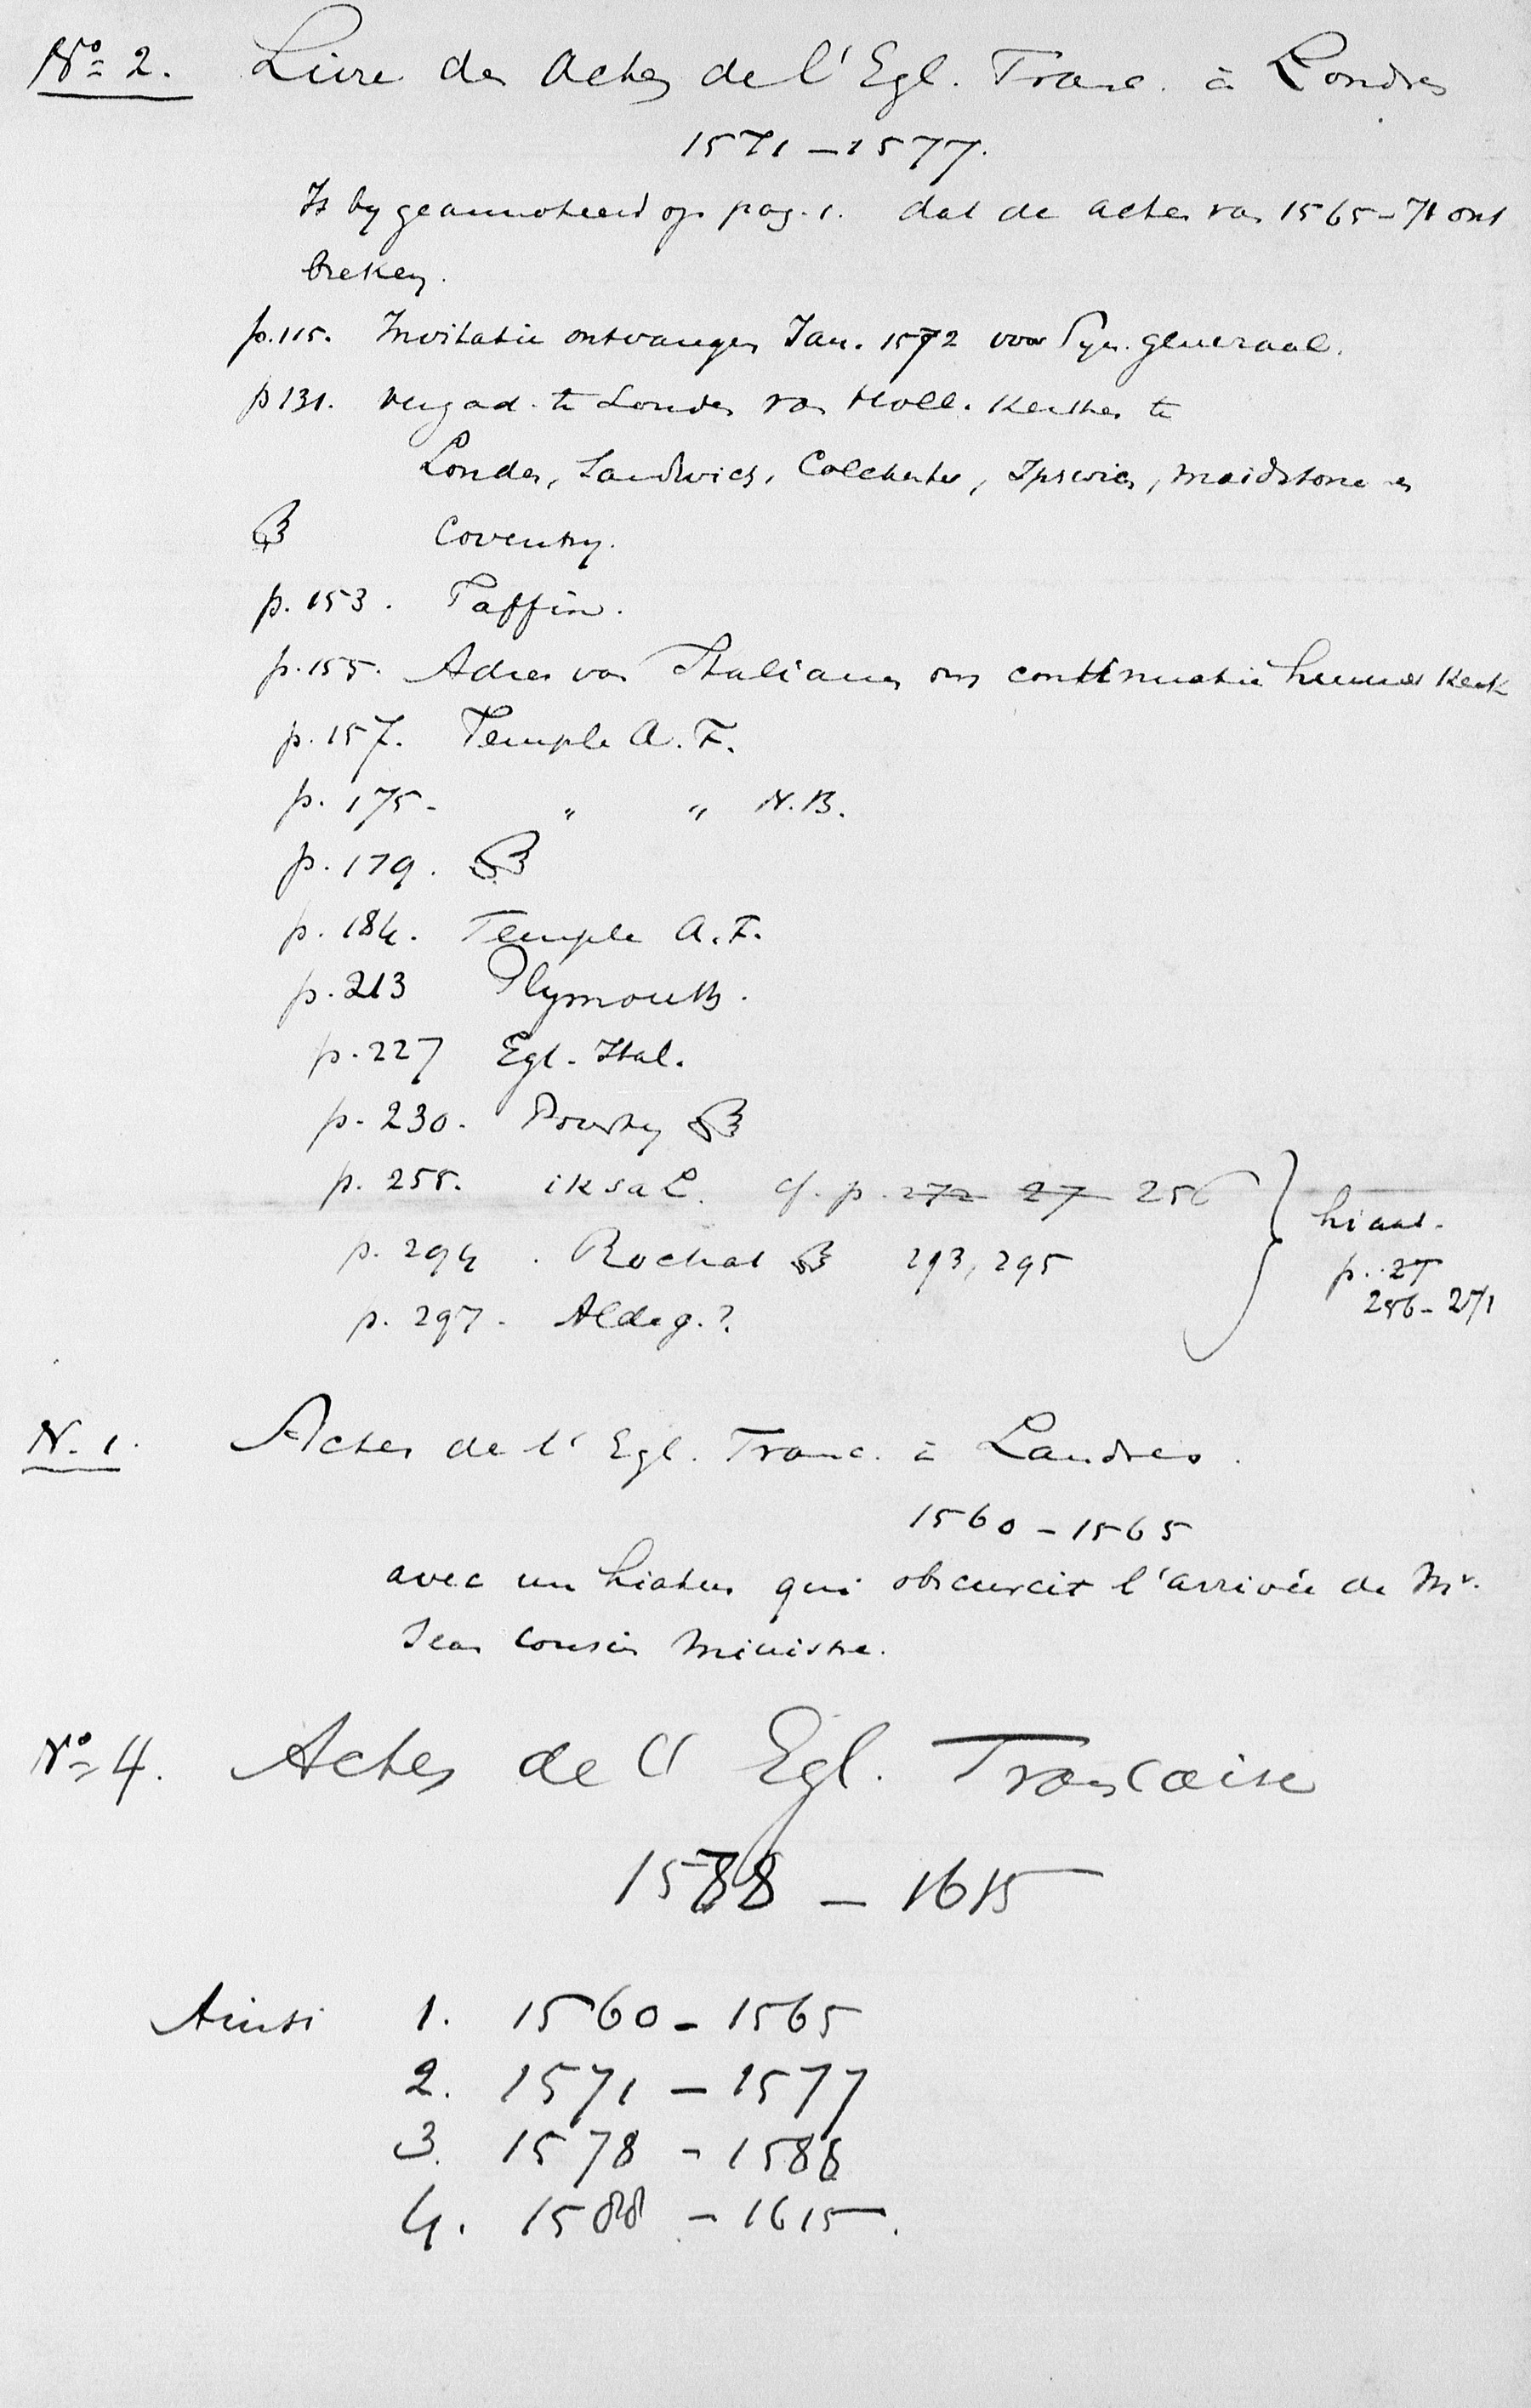 No 2. Livre des Actes de l'Egl. Franc. à Londres
1571 – 1577.
Is bygeannoteerd op pag. 1. dat de actes van 1565–71 ont
breken.
p. 115. Invitatie ontvangen Jan. 1572 voor Syn. generaal.
p 131. vergad. te Londen van Holl. Kerken te
Londen, Sandwich, Colchester, Ipswich, Maidstone en
Coventry.
p. 153. Taffin.
p. 155. Adres van Italianen om continuatie hunner Kerk
p. 157. Temple A. F.
p. 175 - " " N.B.
p. 179.
p. 184. Temple A. F.
p. 213 Plymouth.
p. 227 Egl. Ital.
p. 230.
p. 255. cf. p. 272 27 256
p. 294. Rochat 293, 295
p. 297. Aldeg.?
hiaat.
p. 27
256–271
N. 1. Actes de l'Egl. Franc. à Londres.
1560 – 1565
avec un hiatus qui obscurcit l'arrivée de Mr.
Jean Cousin Ministre.
No 4. Actes de l' Egl. Francaise
1588 – 1615
Ainsi 1. 1560 – 1565
2. 1571 – 1577
3. 1578 – 1588
4. 1588 – 1615.